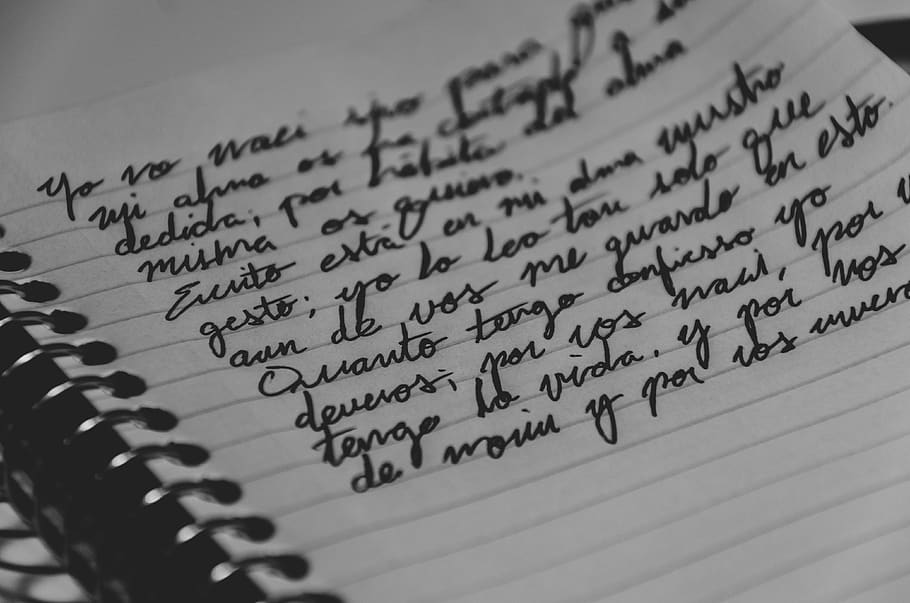 Yo no naci sino para
mi alma os ha cortado a su
dedida; por hábito del alma
misma os quiero.
Escrito está en mi alma vuestro
gesto; yo lo leo tan solo que
aun de vos me guardo en esto.
Quanto tengo confiesso yo
deveros; por vos naci, por
tengo la vida, y por vos
de morir y por vos muero